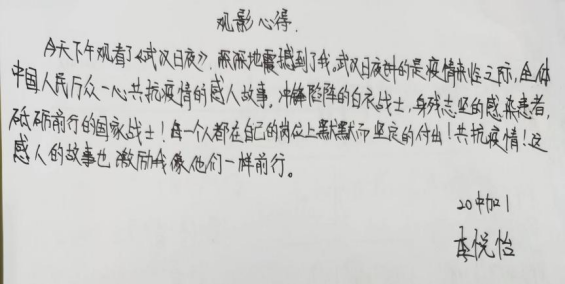 观影心得.
今天下午观看了《武汉日夜》,深深地震撼到了我。武汉日夜讲的是疫情来临之际,全体
中国人民万众一心共抗疫情的感人故事,冲锋陷阵的白衣战士,身残志坚的感染患者,
砥砺前行的国家战士!每一个人都在自己的岗位上默默而坚定的付出!共抗疫情!这
感人的故事也激励我像他们一样前行。
20中加1
李悦怡